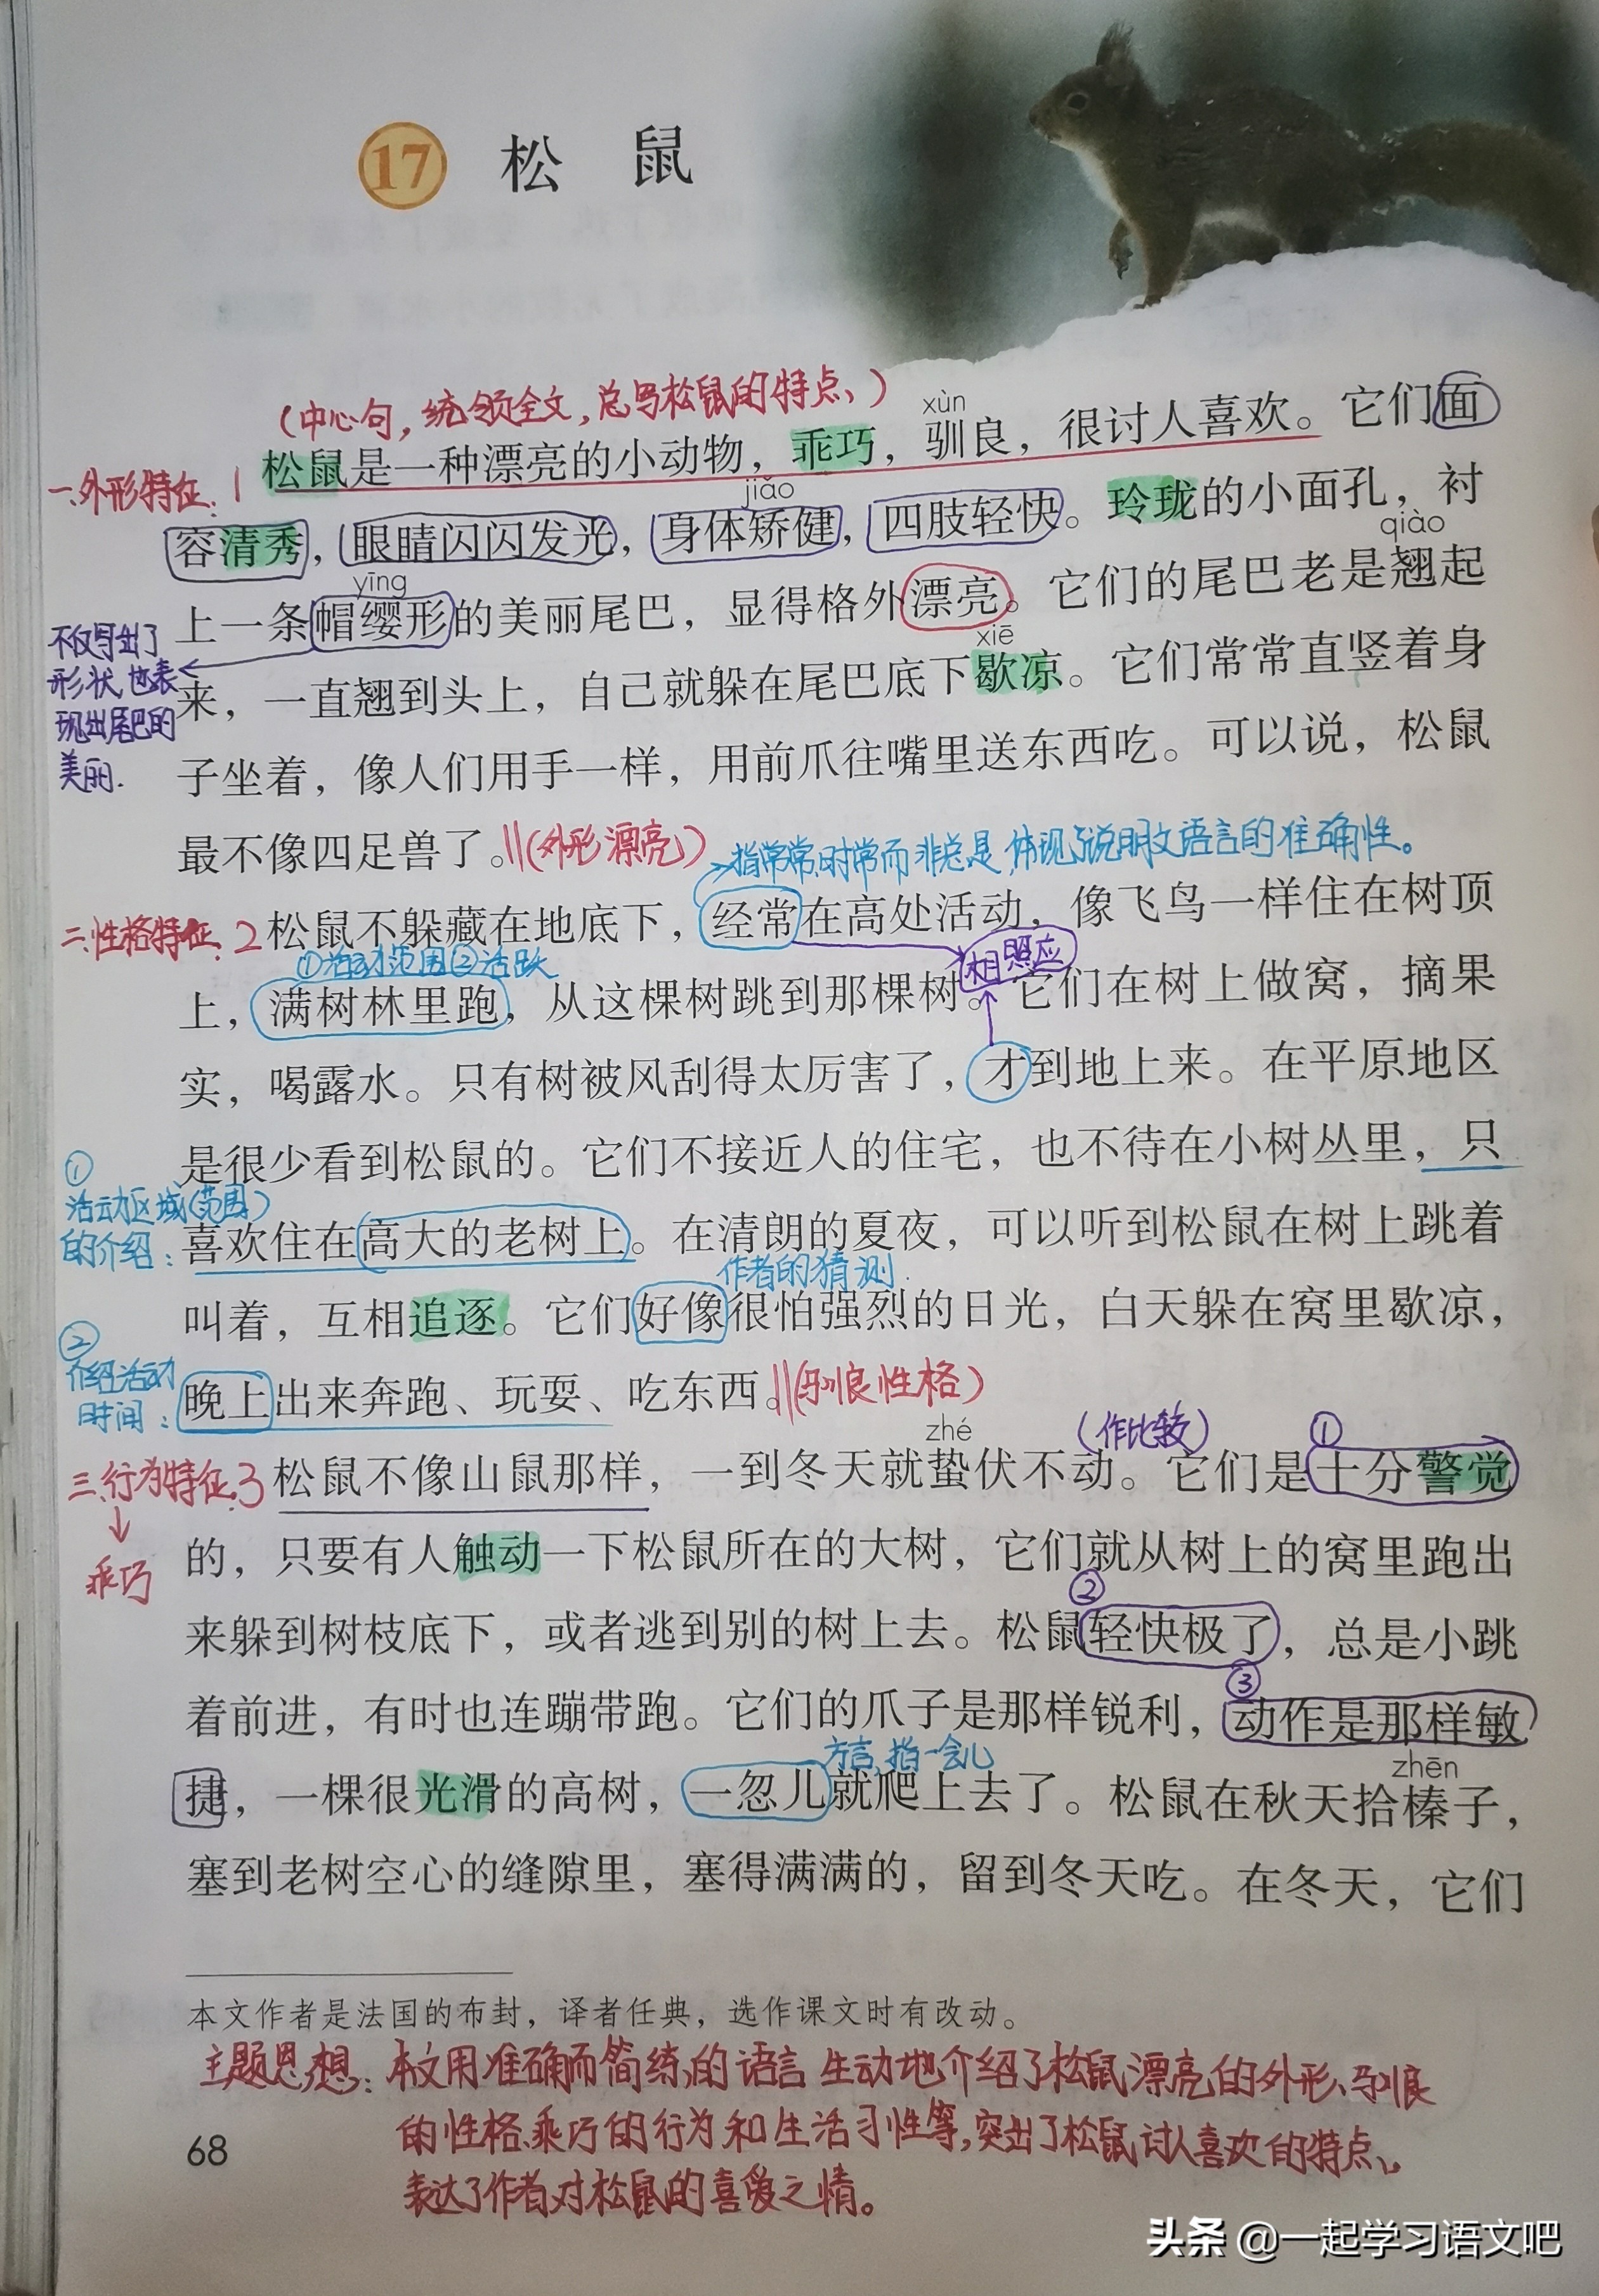 17 松 鼠
(中心句，统领全文，总写松鼠的特点、)
xùn
松鼠是一种漂亮的小动物，乖巧，驯良，很讨人喜欢。它们面
一.外形特征: 1
jiǎo
容清秀，眼睛闪闪发光，身体矫健，四肢轻快。玲珑的小面孔，衬
yīng
qiào
上一条帽缨形的美丽尾巴，显得格外漂亮。它们的尾巴老是翘起
不仅写出了
形状也表
现出尾巴的
美丽.
xiē
来，一直翘到头上，自己就躲在尾巴底下歇凉。它们常常直竖着身
子坐着，像人们用手一样，用前爪往嘴里送东西吃。可以说，松鼠
最不像四足兽了。||(外形漂亮)
指常常,时常而非总是,体现了说明文语言的准确性。
二.性格特征: 2
松鼠不躲藏在地底下，经常在高处活动，像飞鸟一样住在树顶
①活动范围②活跃
相照应
上，满树林里跑，从这棵树跳到那棵树。它们在树上做窝，摘果
实，喝露水。只有树被风刮得太厉害了，才到地上来。在平原地区
是很少看到松鼠的。它们不接近人的住宅，也不待在小树丛里，只
①
活动区域(范围)
的介绍:
喜欢住在高大的老树上。在清朗的夏夜，可以听到松鼠在树上跳着
作者的猜测.
叫着，互相追逐。它们好像很怕强烈的日光，白天躲在窝里歇凉，
②
介绍活动
时间:
晚上出来奔跑、玩耍、吃东西。||(驯良性格)
zhé
(作比较)
①
三.行为特征: 3
松鼠不像山鼠那样，一到冬天就蛰伏不动。它们是十分警觉
↓
乖巧
的，只要有人触动一下松鼠所在的大树，它们就从树上的窝里跑出
②
来躲到树枝底下，或者逃到别的树上去。松鼠轻快极了，总是小跳
③
着前进，有时也连蹦带跑。它们的爪子是那样锐利，动作是那样敏
方言,指一会儿
zhēn
捷，一棵很光滑的高树，一忽儿就爬上去了。松鼠在秋天拾榛子，
塞到老树空心的缝隙里，塞得满满的，留到冬天吃。在冬天，它们
本文作者是法国的布封，译者任典，选作课文时有改动。
主题思想: 本文用准确而简练的语言生动地介绍了松鼠漂亮的外形、驯良
的性格、乖巧的行为和生活习性等,突出了松鼠讨人喜欢的特点、,
表达了作者对松鼠的喜爱之情。
68
头条 @一起学习语文吧